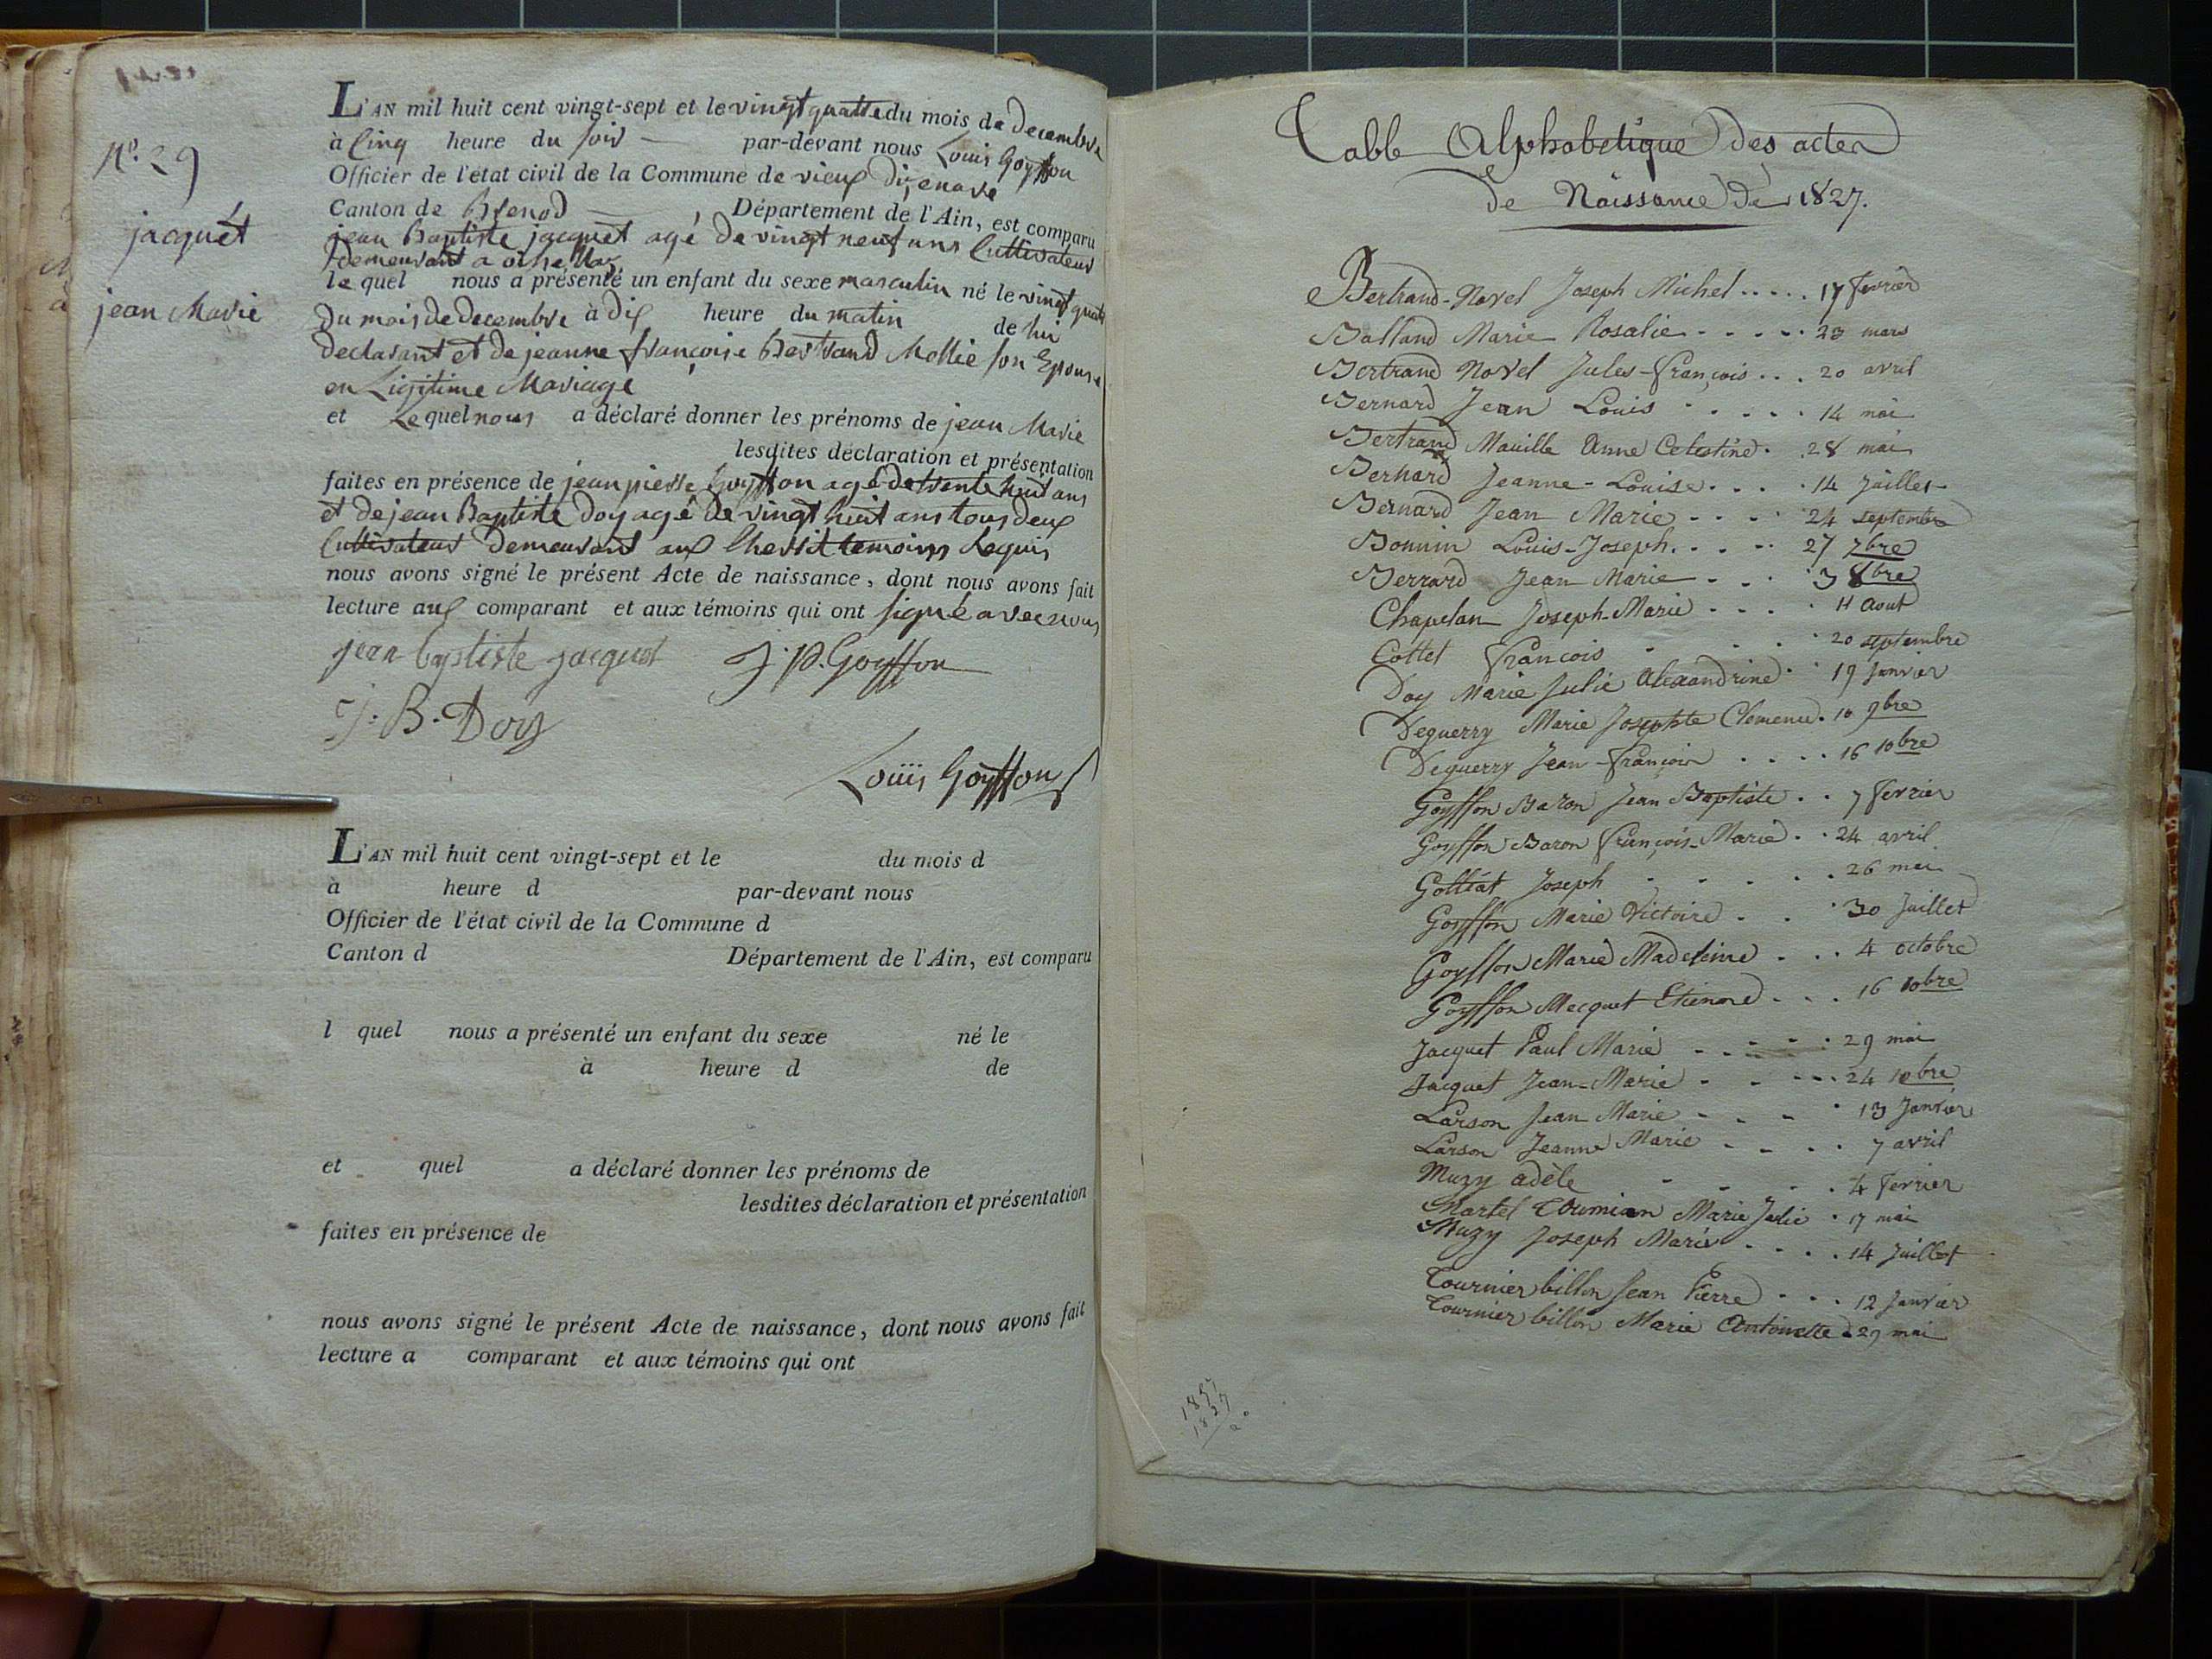 N°. 29
jacquet
jean Marie
L'AN mil huit cent vingt-sept et le vingt quatre du mois de decembre
à Cinq heure du soir par-devant nous Louis Goyffon
Officier de l'état civil de la Commune de vieux disenave
Canton de Brenod Département de l'Ain, est comparu
jean Baptiste jacquet agé de vingt neuf ans Cultivateur
demeurant a
le quel nous a présenté un enfant du sexe masculin né le vingt quatre
du mois de decembre à dix heure du matin de lui
declarant et de jeanne françoise Bertrand Mollie son Epouse
en Ligitime Mariage
et Le quel nous a déclaré donner les prénoms de jean Marie
lesdites déclaration et présentation
faites en présence de jean pierre Goyffon agé de trente huit ans
et de jean Baptiste Doy agé de vingt huit ans tous deux
Cultivateur demeurant aux temoins
nous avons signé le présent Acte de naissance, dont nous avons fait
lecture aux comparant et aux témoins qui ont signé avec nous
jean baptiste jacquet J. P. Goyffon
J. B. Doy
Louis Goyffon
L'AN mil huit cent vingt-sept et le du mois d
à heure d par-devant nous
Officier de l'état civil de la Commune d
Canton d Département de l'Ain, est comparu
l quel nous a présenté un enfant du sexe né le
à heure d de
et quel a déclaré donner les prénoms de
lesdites déclaration et présentation
faites en présence de
nous avons signé le présent Acte de naissance, dont nous avons fait
lecture a comparant et aux témoins qui ont
Table Alphabetique des actes
de Naissance de 1827.
Bertrand-Novel Joseph Michel ..... 17 fevrier
Balland Marie Rosalie ..... 23 mars
Bertrand Novel Jules-françois ... 20 avril
Bernard Jean Louis ..... 14 mai
Bertrand Mauille Anne Celestine . 28 mai
Bernard Jeanne-Louise .... 14 Juillet
Bernard Jean Marie .... 24 septembre
Bonnin Louis-Joseph. .... 27 7bre
Berrard Jean Marie ... 3 8bre
Chapelan Joseph-Marie .... 11 Aout
Cottet François .... 20 septembre
Doy Marie Julie Alexandrine . 19 Janvier
Deguerry Marie Josephte Clemence. 10 9bre
Deguerry Jean-François .... 16 10bre
Goyffon Baron Jean Baptiste .. 7 fevrier
Goyffon Baron François-Marie .. 24 avril
Golliat Joseph ..... 26 mai
Goyffon Marie Victoire ... 30 Juillet
Goyffon Marie Madeleine ... 4 octobre
Goyffon Mecquet Etienne ... 16 10bre
Jacquet Paul Marie ..... 29 mai
Jacquet Jean-Marie ..... 24 10bre
Larson Jean Marie .... 13 Janvier
Larson Jeanne Marie .... 7 avril
Muzy adèle .... 4 Fevrier
Martel Marie Julie . 17 mai
Muzy Joseph Marie .... 14 Juillet
Tournier billon Jean Pierre ... 12 Janvier
Tournier billon Marie Antoinette . 29 mai
1857
1827